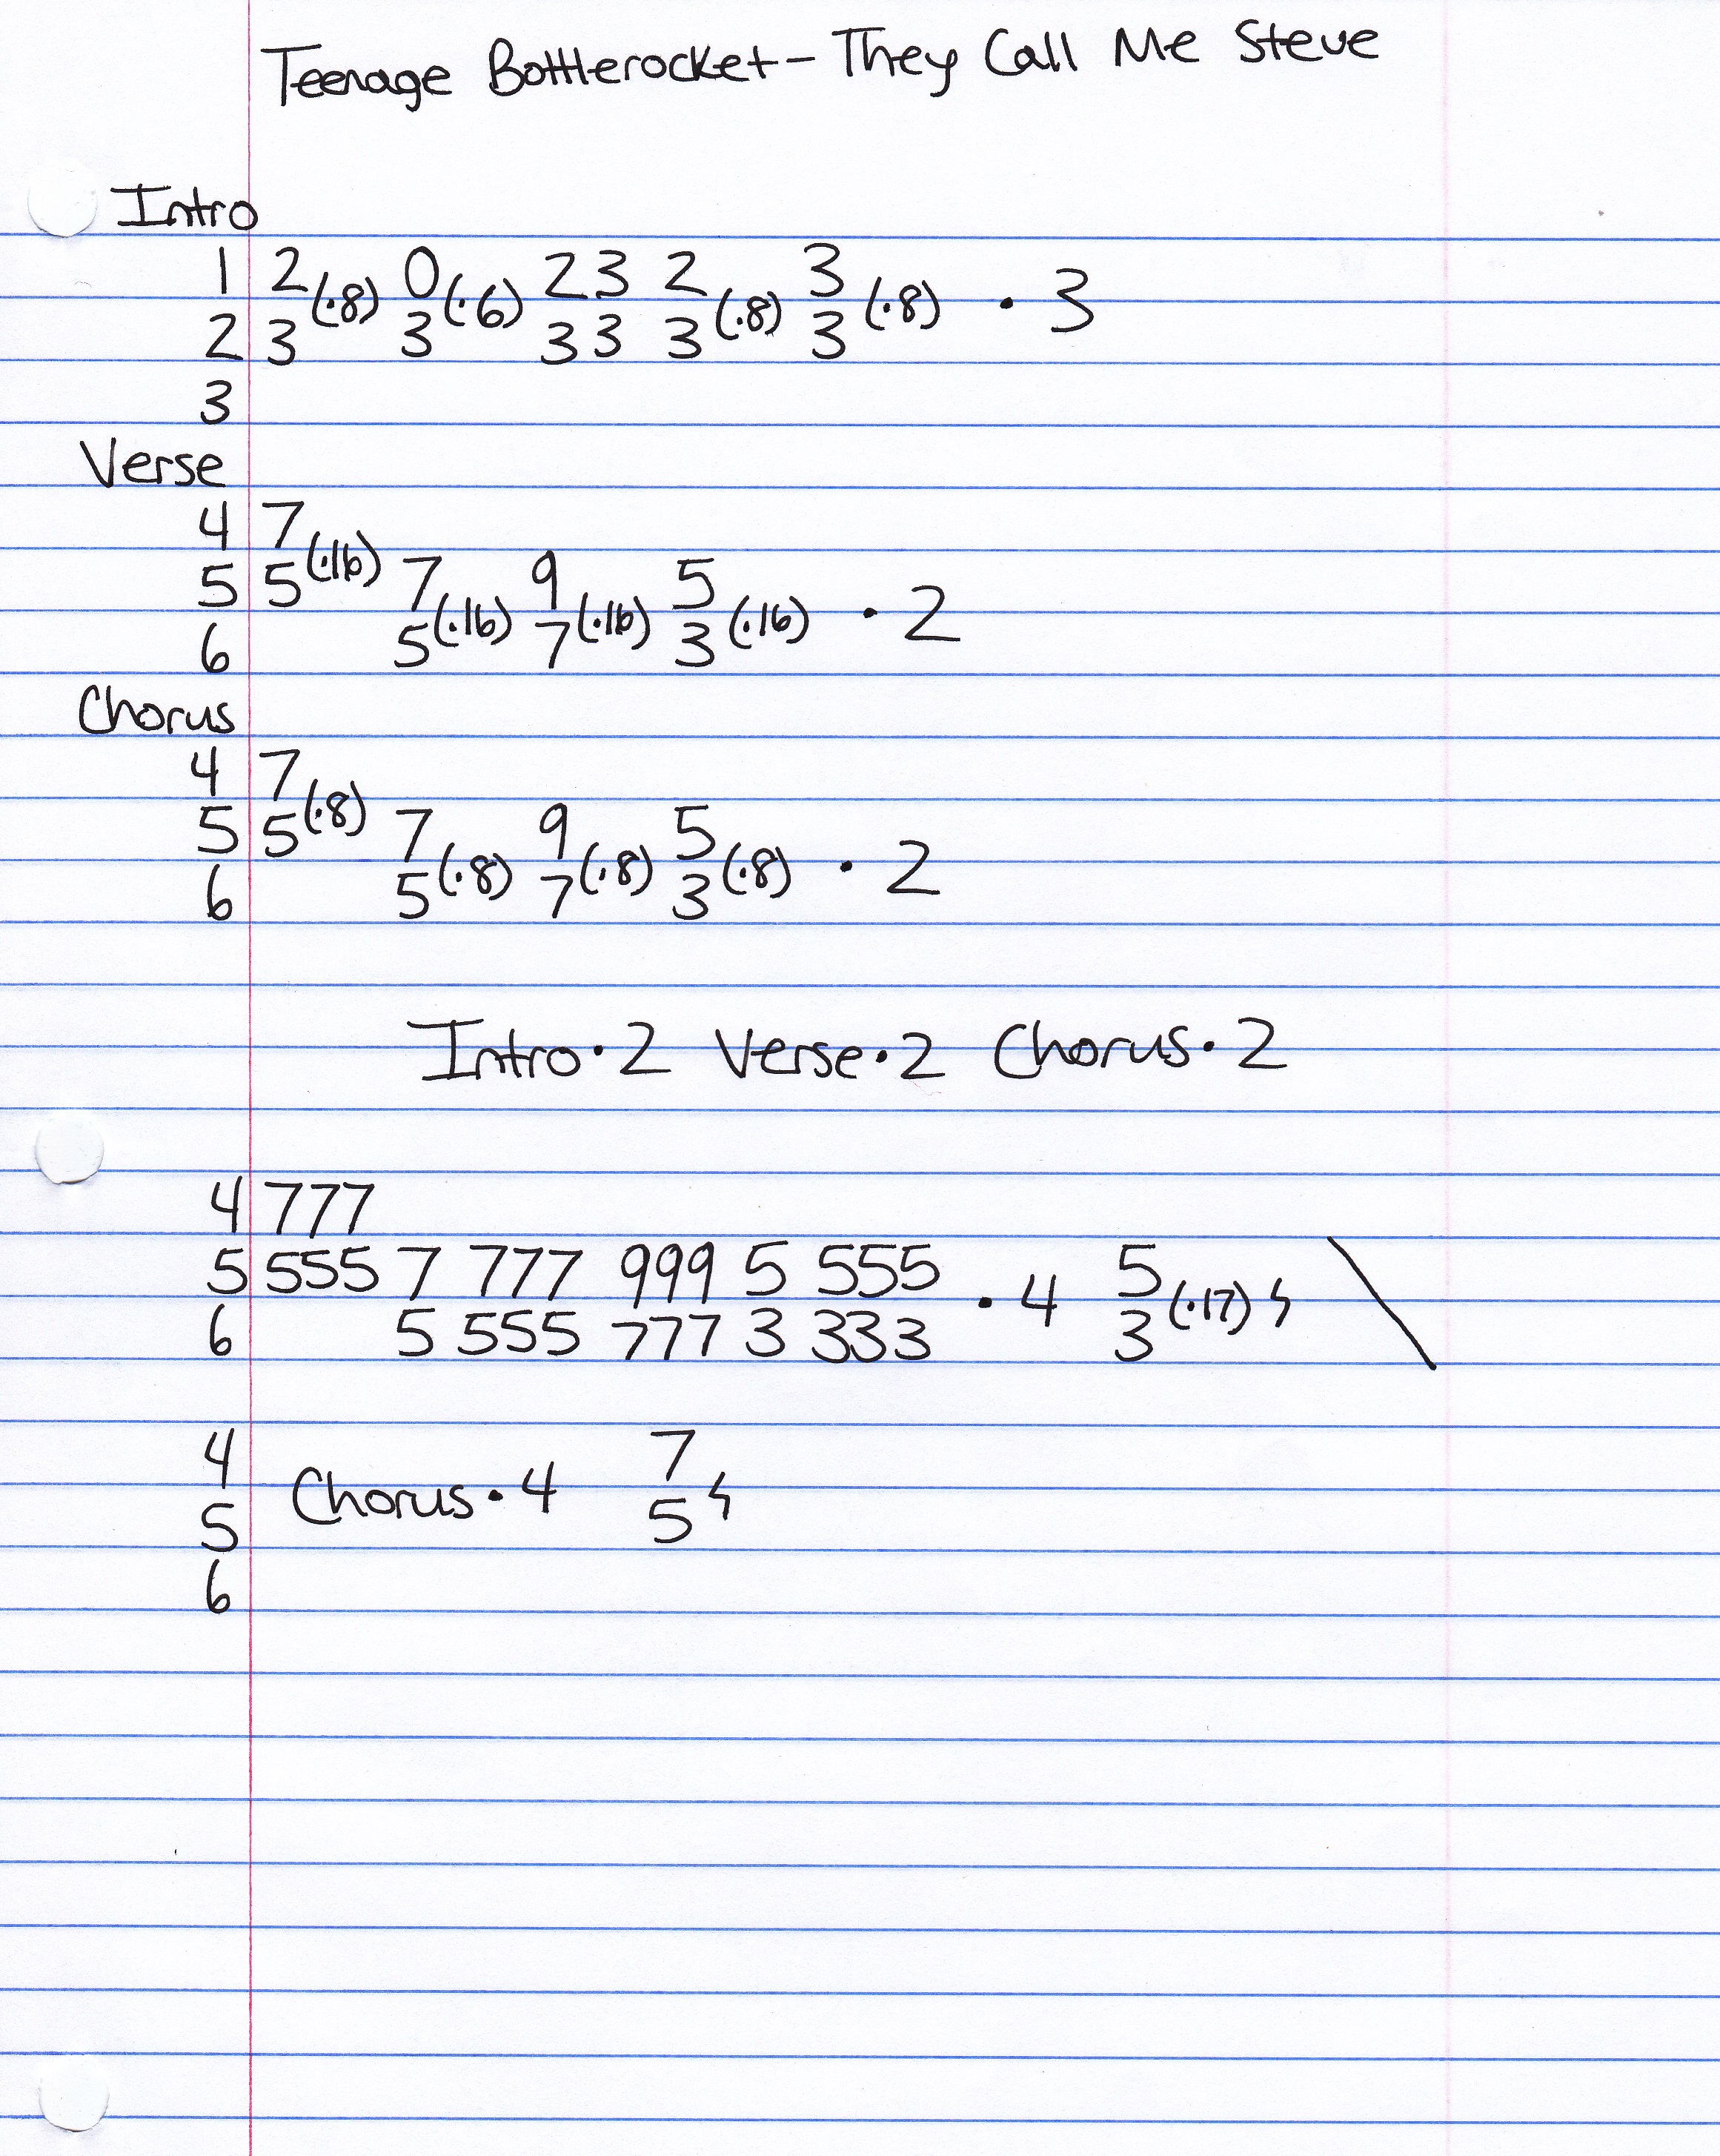 Teenage Bottlerocket - They Call Me Steve
Intro
1 2 (·8) 0 (·6) 2 3 2 (·8) 3 (·8) · 3
2 3 3 3 3 3 3
3
Verse
4 7 (·16)
5 5 7 (·16) 9 (·16) 5 (·16) · 2
6 5 7 3
Chorus
4 7 (·8)
5 5 7 (·8) 9 (·8) 5 (·8) · 2
6 5 7 3
Intro · 2 Verse · 2 Chorus · 2
4 777
5 555 7 777 999 5 555 · 4 5 (·17) ϟ \
6 5 555 777 3 333 3
4 Chorus · 4 7
5 5 ϟ
6